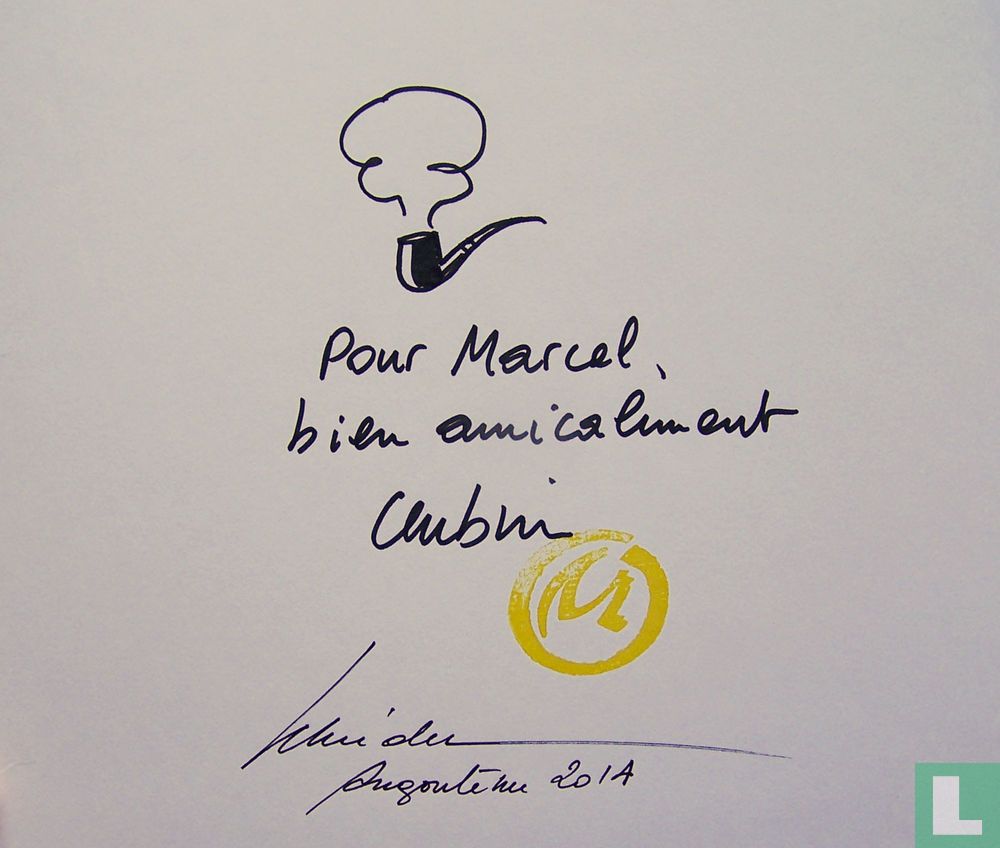 Pour Marcel,
bien amicalement
Aubin
Schréder
Angoulême 2014
L